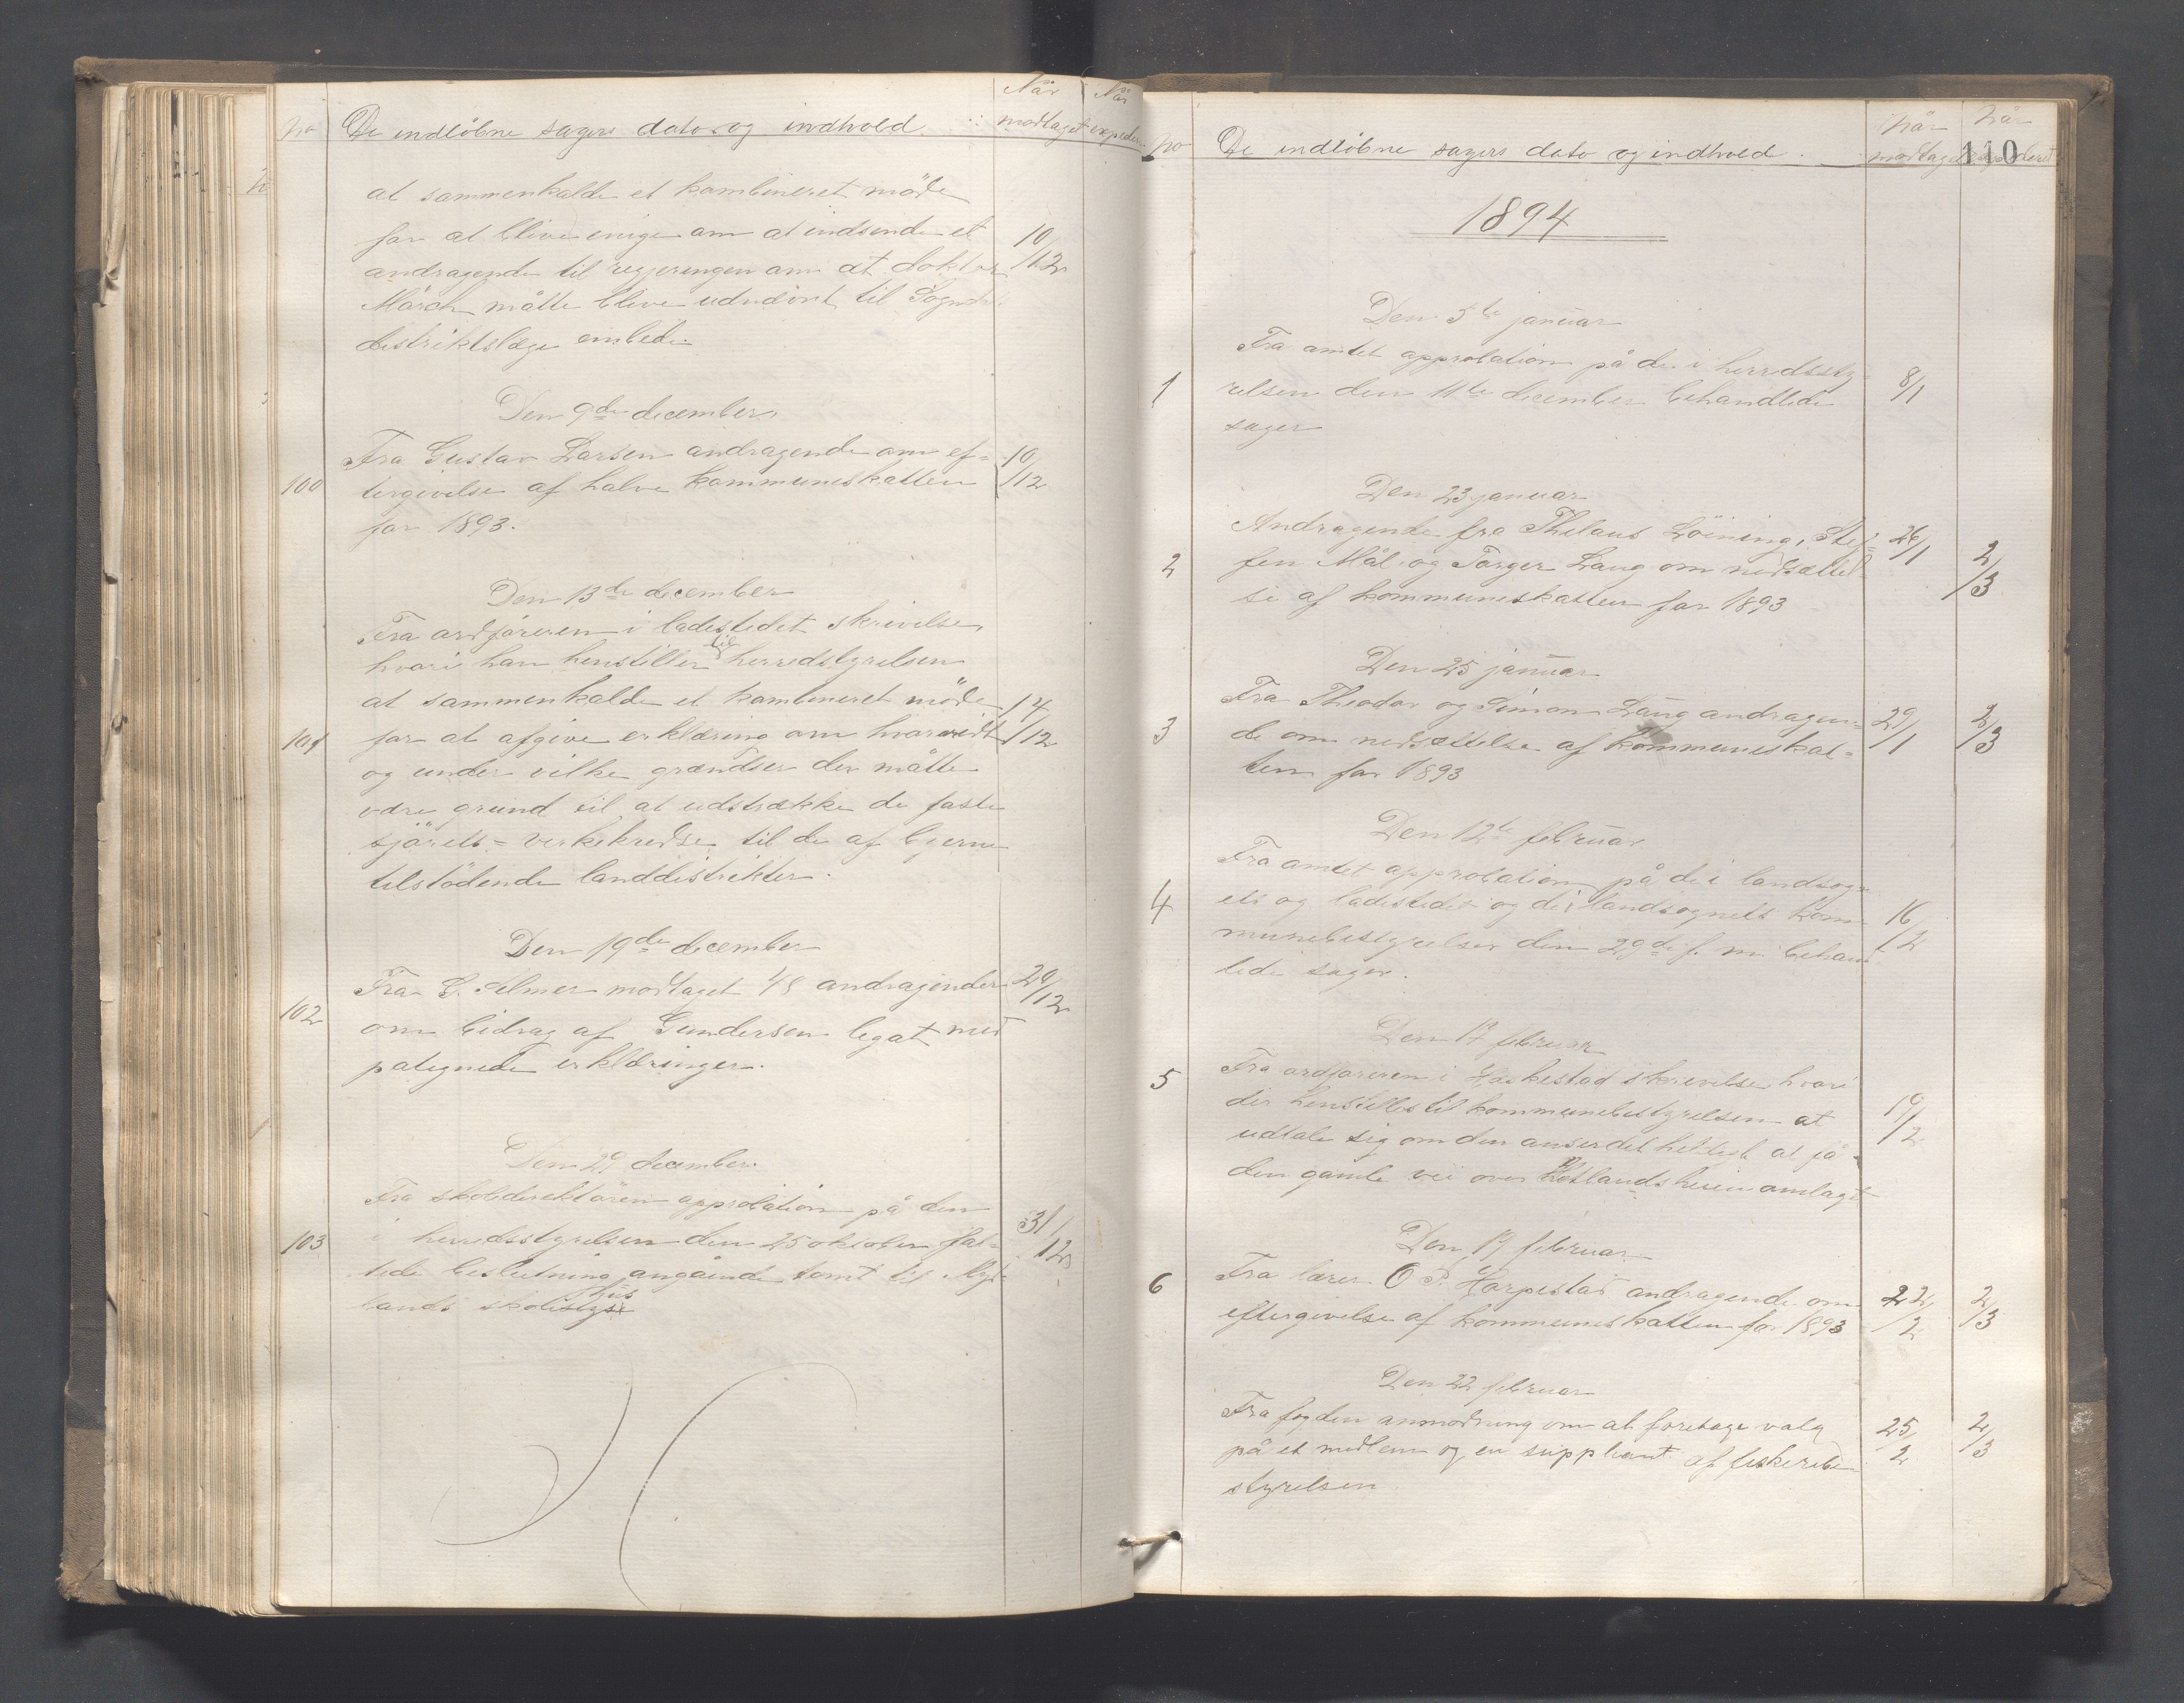 No De indløbne sagers dato og indhold. Når modtaget Når exspederet
at sammenkalde et kombineret møde
for at blive enige om at indsende et 10/12
andragende til regjeringen om at doktor
March måtte blive udnævnt til Sogndal
distriktslæge embede.
Den 9de december.
Fra Gustav Larsen andragende om ef- 10/12
100 tergivelse af halve kommuneskatten
for 1893.
Den 13de december
Fra ordføreren i ladestedet skrivelse,
hvori han henstiller til herredstyrelsen
at sammenkalde et kombineret møde 14/12
101 for at afgive erklæring om hvorvidt
og under vilke grændser der måtte
være grund til at udstrække de faste
virkekredse til de af byerne
tilstødende landdistrikter.
Den 19de december
Fra G. Selmer modtaget 48 andragender 20/12
102 om bidrag af Gundersen legat med
påtegnede erklæringer.
Den 29 december.
Fra skoledirektøren approbation på den
103 i herredsstyrelsen den 25 oktober fat- 31/12
tede beslutning angående tomt til
lands skolehus
No De indløbne sagers dato og indhold. Når modtaget Når exspederet
110
1894
Den 5te januar
Fra amtet approbation på de i herredssty-
1 relsen den 11te december behandlede 8/1
sager
Den 23 januar
Andragende fra Thelaus Løining, Stef- 26/1
2 fen Mål og Torger Laug om nedsættel- 2/3
se af kommuneskatten for 1893
Den 25 januar
Fra Theodor og Simon Laug andragen- 29/1 2/3
3 de om nedsættelse af kommuneskat-
ten for 1893
Den 12te februar
Fra amtet approbation på de i landsogn-
4 ets og ladestedet og de i landsognets kom- 16/2
munebestyrelser den 29de f. m. behand-
lede sager.
Den 17 februar
5 Fra ordføreren i Heskestad skrivelse hvori
der henstilles til kommunebestyrelsen at 19/2
udtale sig om den anser det heldigt at få
den gamle vei over Hetlandsheien omlagt
Den 19 februar
6 Fra lærer O P. Harpestad andragende om 22/2 2/3
eftergivelse af kommuneskatten for 1893
Den 22 februar
Fra fogden anmodning om at foretage valg 25/2 2/3
på et medlem og en suppleant af fiskeribe-
styrelsen